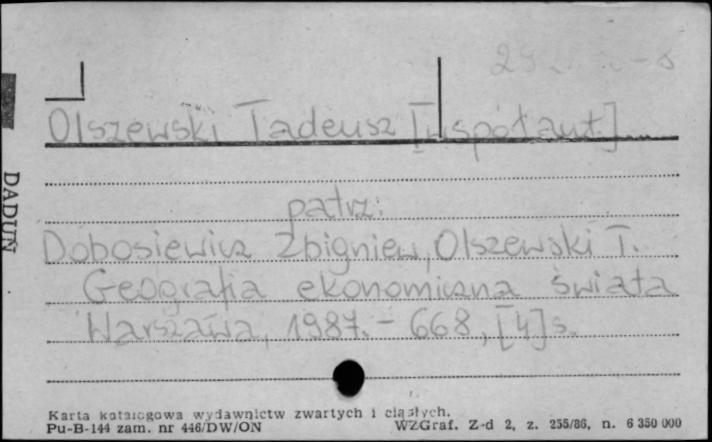 Olszewski Tadeusz [współaut.]
patrz:
Dobosiewicz Zbigniew, Olszewski T.
Geografia ekonomiczna świata
Warszawa, 1987. - 668, [4] s.
DADUŃ
Karta katalogowa wydawnictw zwartych i ciągłych.
Pu-B-144 zam. nr 446/DW/ON WZGraf. Z-d 2, z. 255/86, n. 6 350 000